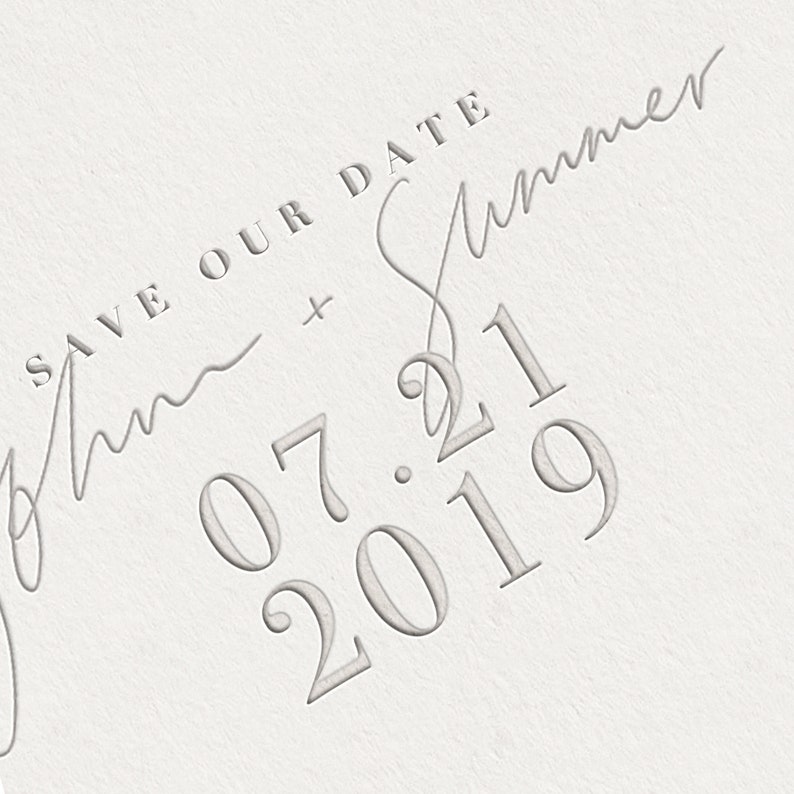 SAVE OUR DATE
John + Summer
07.21
2019